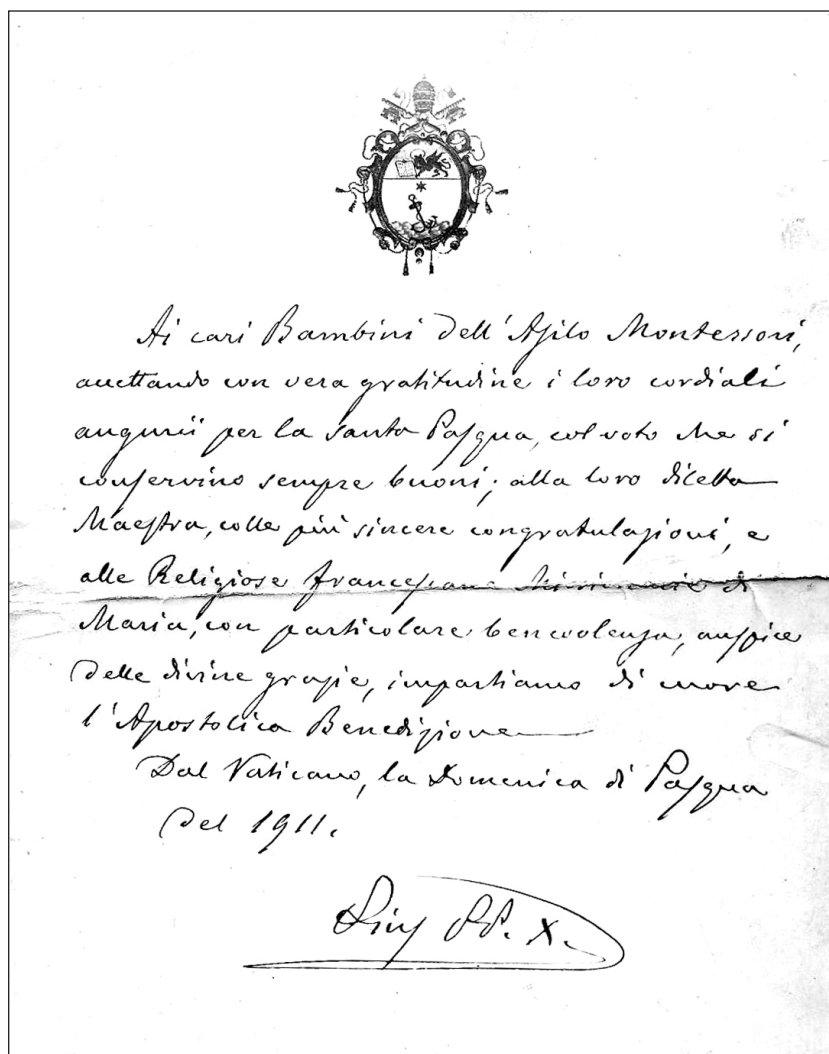 Ai cari Bambini dell'Asilo Montessori,
accettando con vera gratitudine i loro cordiali
augurii per la santa Pasqua, col voto che si
conservino sempre buoni; alla loro diletta
Maestra, colle più sincere congratulazioni, e
alle Religiose francescane Missionarie di
Maria, con particolare benevolenza, auspice
delle divine grazie, impartiamo di cuore
l'Apostolica Benedizione
Dal Vaticano, la Domenica di Pasqua
del 1911.
Pius PP. X.